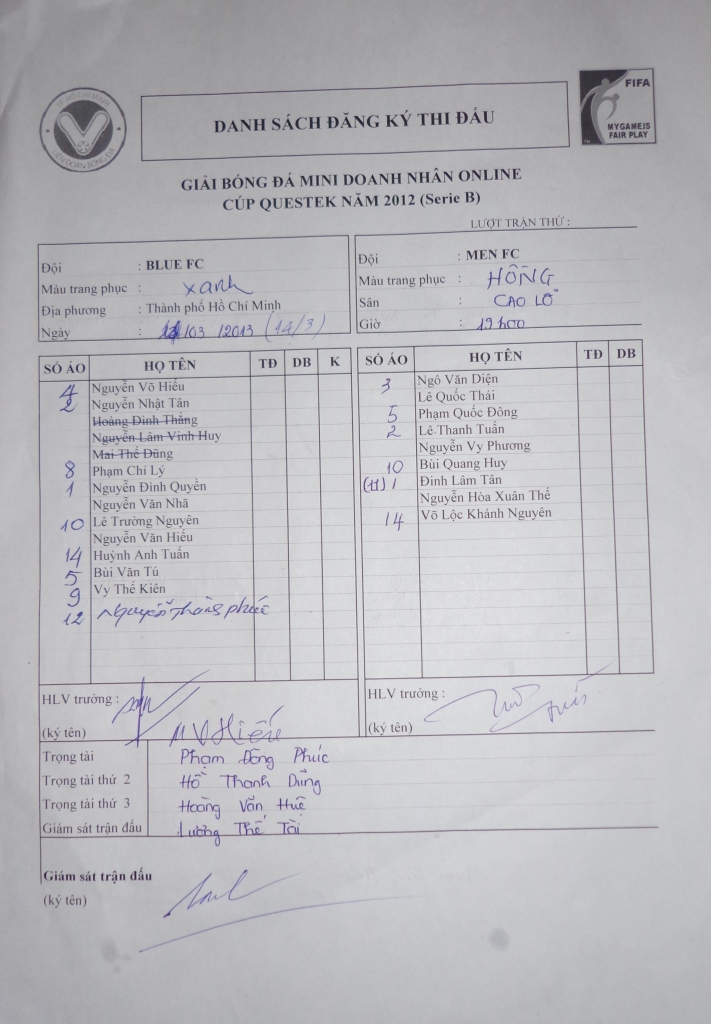 TP HỒ CHÍ MINH
LIÊN ĐOÀN BÓNG ĐÁ
DANH SÁCH ĐĂNG KÝ THI ĐẤU
FIFA
MY GAME IS
FAIR PLAY
GIẢI BÓNG ĐÁ MINI DOANH NHÂN ONLINE
CÚP QUESTEK NĂM 2012 (Serie B)
LƯỢT TRẬN THỨ :
Đội : BLUE FC
Màu trang phục : xanh
Địa phương : Thành phố Hồ Chí Minh
Ngày : /03 /2013 (14/3)
Đội : MEN FC
Màu trang phục : HỒNG
Sân : CAO LỖ
Giờ : 19h00
SỐ ÁO HỌ TÊN TĐ DB K
4 Nguyễn Võ Hiếu
2 Nguyễn Nhật Tân
Hoàng Đình Thắng
Nguyễn Lâm Vinh Huy
Mai Thế Dũng
8 Phạm Chí Lý
1 Nguyễn Đình Quyền
Nguyễn Văn Nhã
10 Lê Trường Nguyên
Nguyễn Văn Hiếu
14 Huỳnh Anh Tuấn
5 Bùi Văn Tú
9 Vy Thế Kiên
12 Nguyễn Hoàng phúc
SỐ ÁO HỌ TÊN TĐ DB
3 Ngô Văn Diện
Lê Quốc Thái
5 Phạm Quốc Đông
2 Lê Thanh Tuấn
Nguyễn Vy Phương
10 Bùi Quang Huy
(11) 1 Đinh Lâm Tân
Nguyễn Hòa Xuân Thế
14 Võ Lộc Khánh Nguyên
HLV trưởng :
(ký tên) N V Hiếu
HLV trưởng :
(ký tên)
Trọng tài Phạm Đông Phúc
Trọng tài thứ 2 Hồ Thanh Dũng
Trọng tài thứ 3 Hoàng Văn Huệ
Giám sát trận đấu Lương Thế Tài
Giám sát trận đấu
(ký tên)